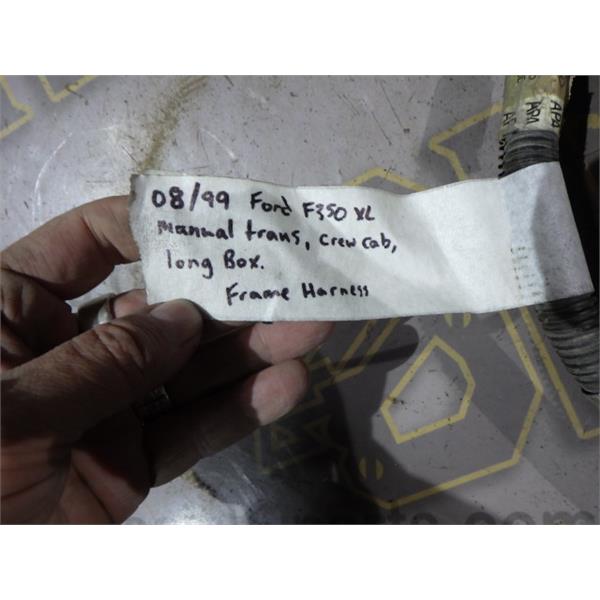 08/99 Ford F350 XL
manual trans, crew cab,
long Box.
Frame Harness